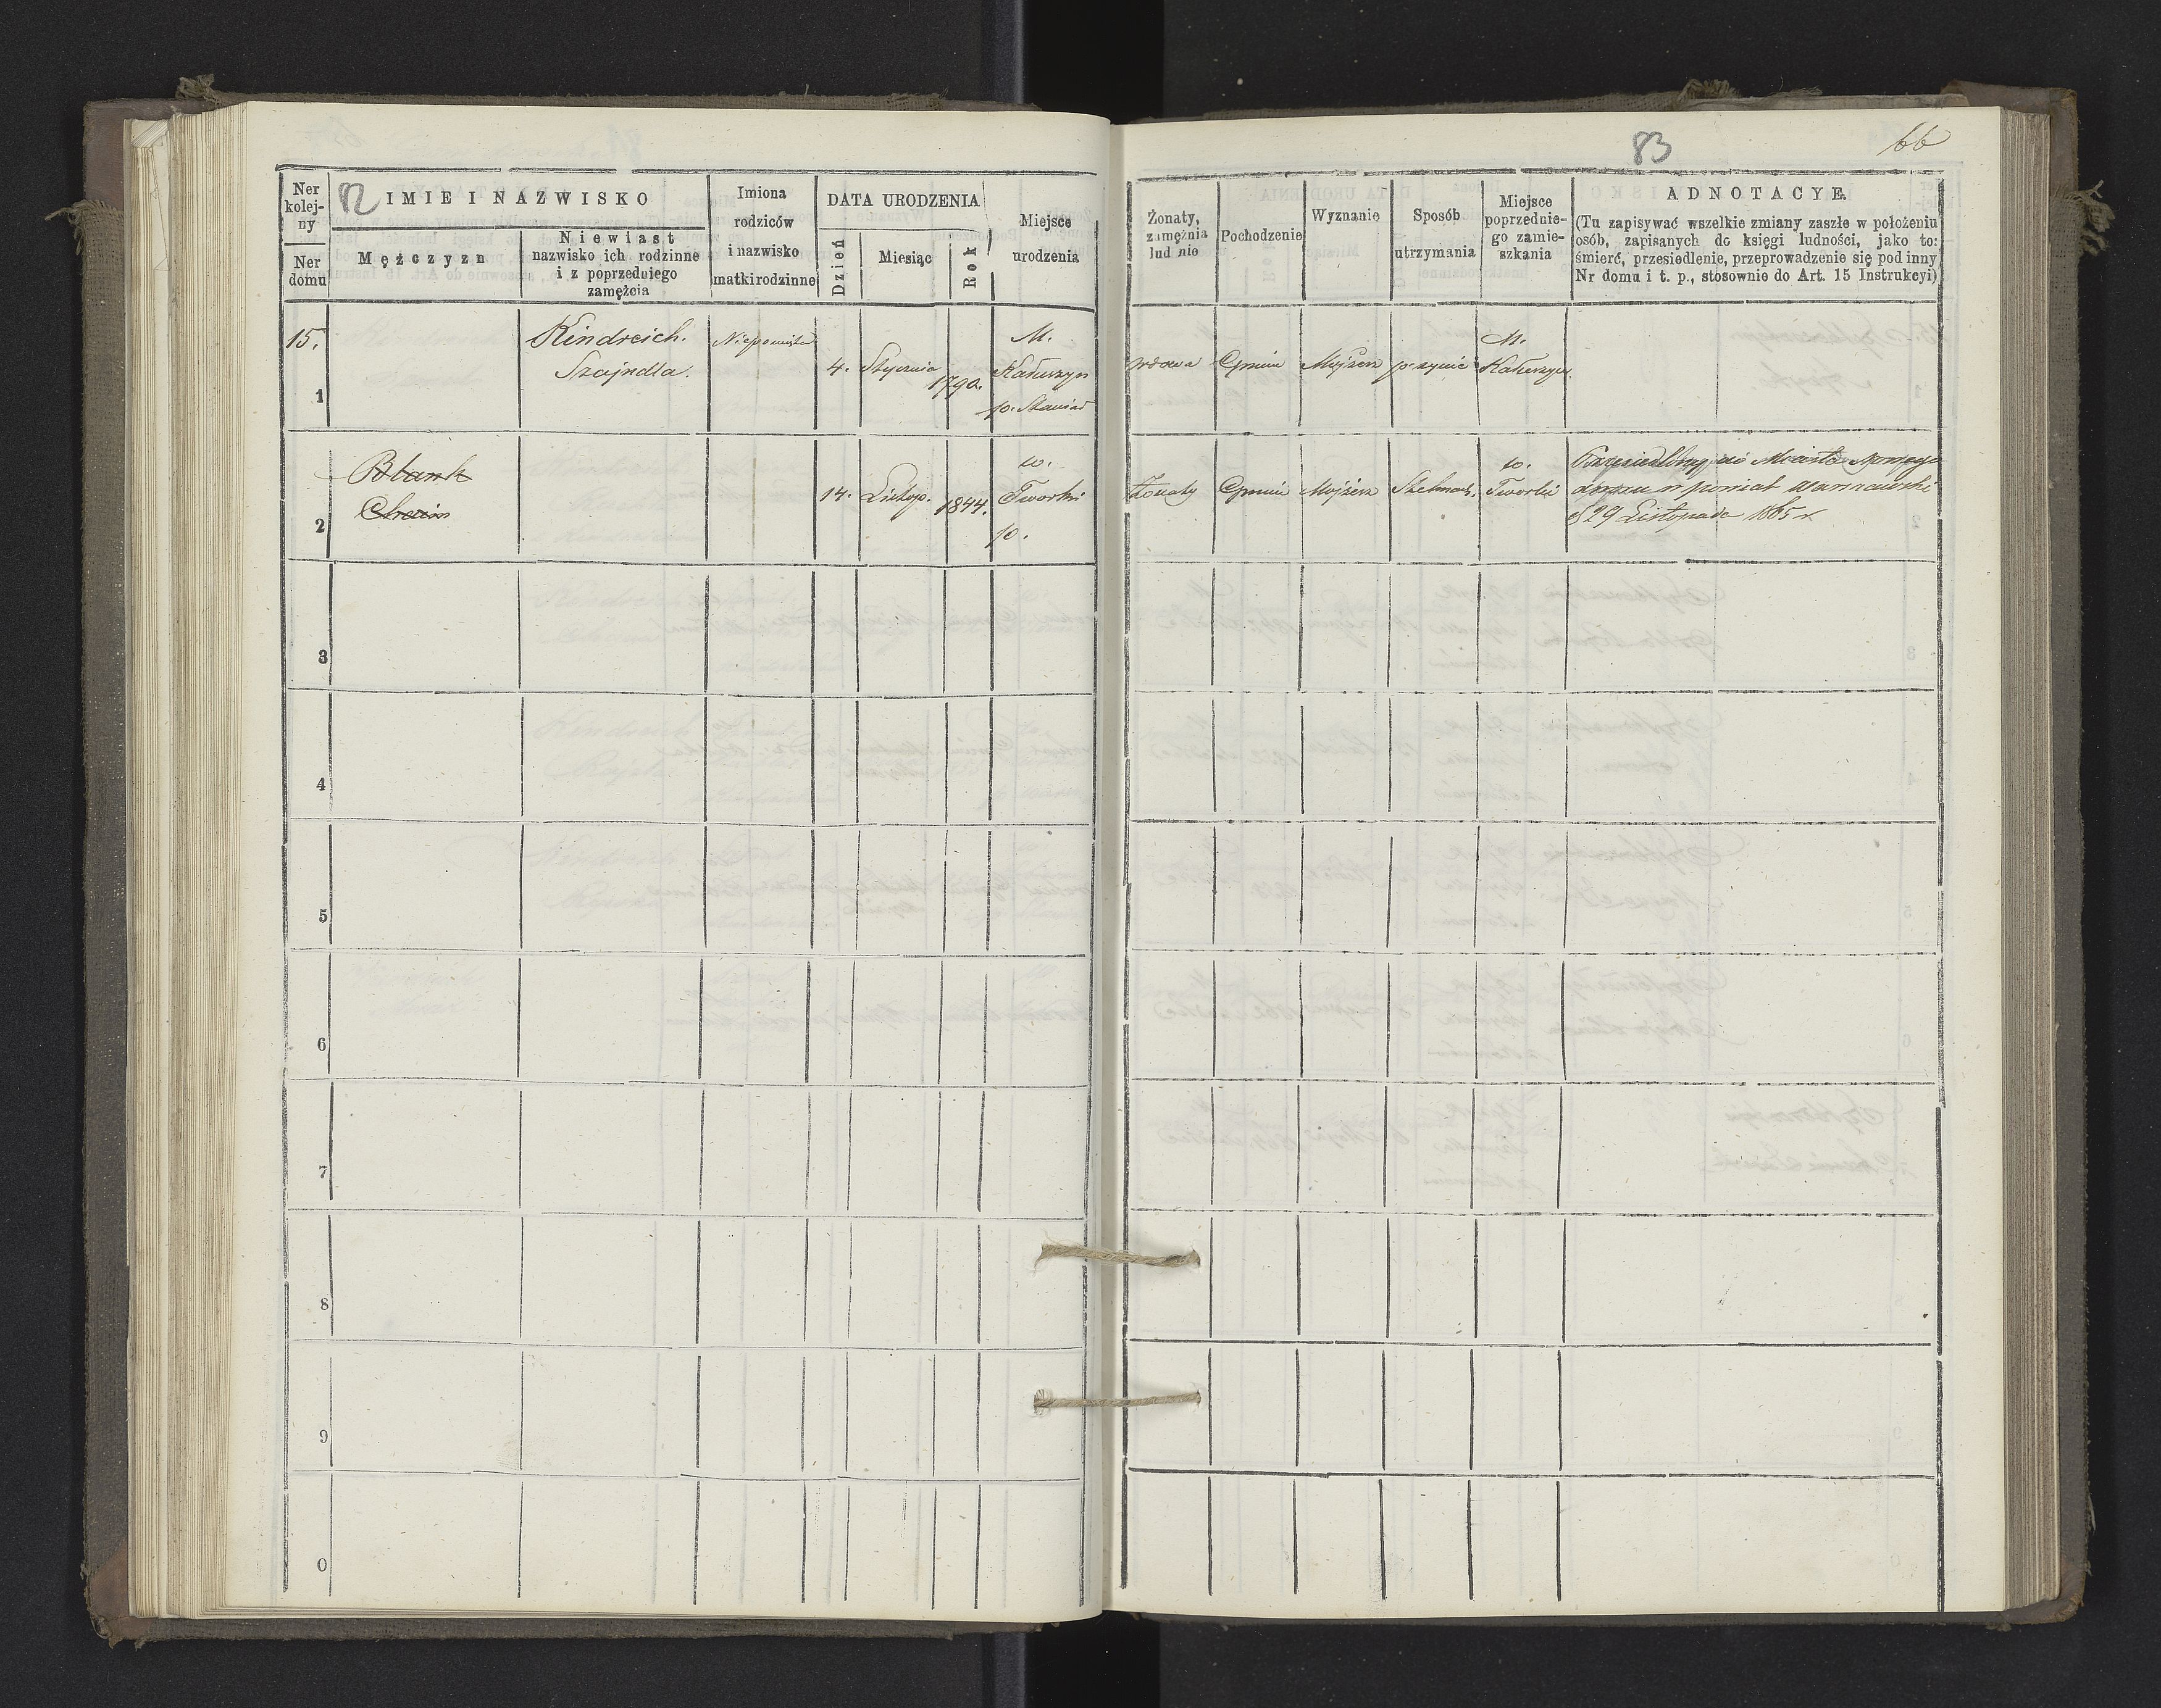 82
83
66
Ner
kolej-
ny
Ner
domu
IMIE I NAZWISKO
Mężczyzn
Niewiast
nazwisko ich rodzinne
i z poprzedniego
zamężcia
Imiona
rodziców
i nazwisko
matki rodzinne
DATA URODZENIA
Dzień
Miesiąc
Rok
Miejsce
urodzenia
Żonaty,
zamężnia
lud nie
Pochodzenie
Wyznanie
Sposób
utrzymania
Miejsce
poprzednie-
go zamie-
szkania
ADNOTACYE.
(Tu zapisywać wszelkie zmiany zaszłe w położeniu
osób, zapisanych do księgi ludności, jako to:
śmierć, przesiedlenie, przeprowadzenie się pod inny
Nr domu i t. p., stosownie do Art. 15 Instrukcyi)
15.
1
Kindreich.
Szajndla.
4.
Stycznia
1790.
M.
Kałuszyn
p. Stanisł
wdowa
Gminu
Mojżesz
przy
M.
Kałuszyn.
2
Blank
Chaim
14.
Listop.
1844.
w.
Tworki
p.
Żonaty
Gminu
Mojżesz
w.
Tworki
Przesiedlony do Miasta Nowego
dworu w powiat Warszawski
d 29 Listopada 1865 r
3
4
5
6
7
8
9
0